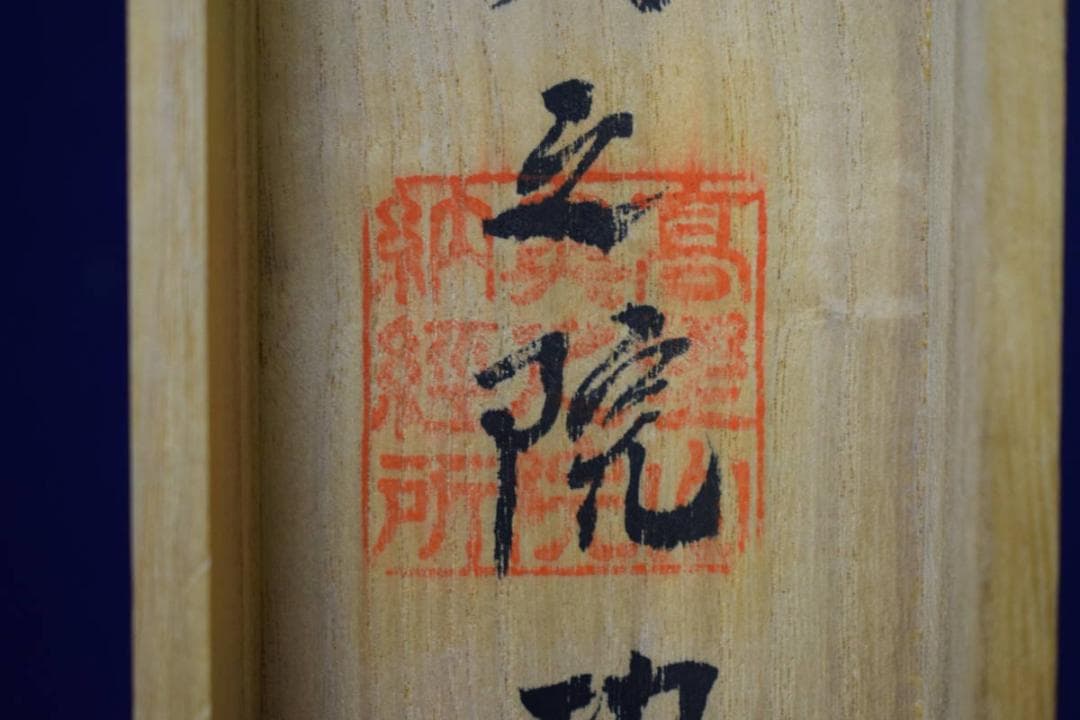 之院
高野山
奥之院
納経所